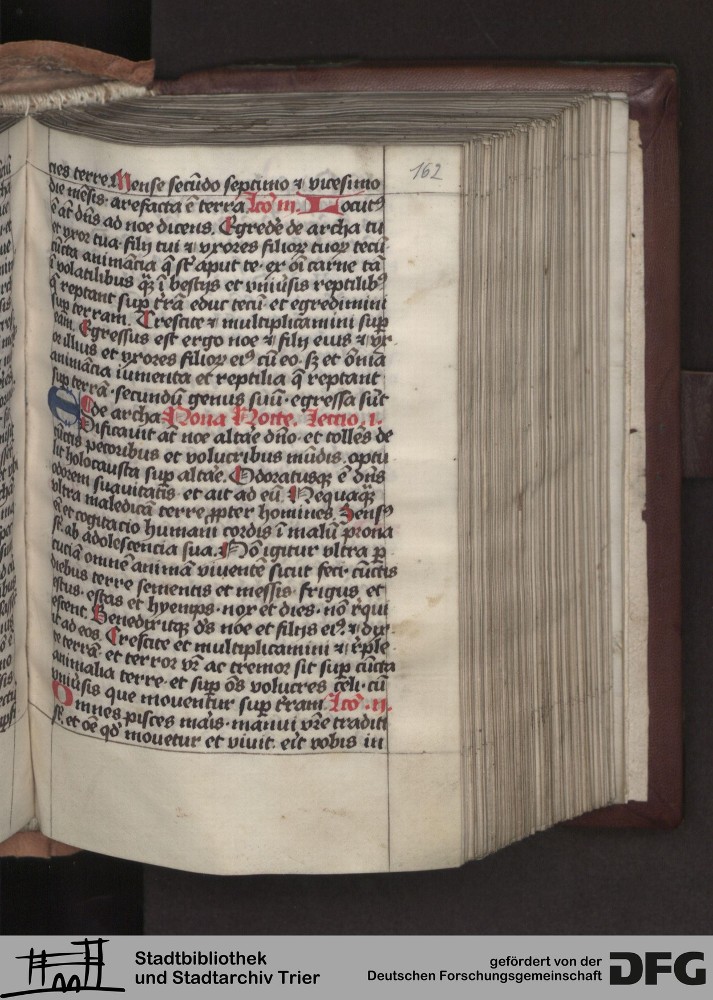 162
cies terre. Mense secūdo septimo ⁊ vicesimo
die mēsis· arefacta ē terra Lcō iii. Locutꝰ
ē āt dn̄s ad noe dicens. Egrede de archa tu
et vxor tua· filij tui ⁊ vxores filioꝝ tuoꝝ tecū
cūcta animācia q̄ st̄ aput te· ex oī carne tā
ī volatilibus qꝫ̄ ī bestijs et vniūsis reptilibꝰ
q̄ reptant sup t̄rā educ tecū· et egredimini
sup terram. Crescite ⁊ multiplicamini sup
eam. Egressus est ergo noe ⁊ filij eius ⁊ vx
or illius et vxores filioꝝ eiꝰ cū eo· sꝫ et ōnīa
animācia iumenta et reptilia q̄ reptant
sup terrā· secundū genus suū· egressa sūt
de archa Nona Nocte. Lectio .i.
Edificauit āt noe altāe dn̄o· et tollēs de
cūctis pecoribus et volucribus mūdis. optu
lit holocausta sup altāe. Odoratusqꝫ ē dn̄s
odorem suauitatis· et ait ad eū. Nequaqꝫ̄
vltra maledicā terre ꝓpter homines. Sensꝰ
ei et cogitacio humani cordis ī malū prona
st̄· ab adolescencia sua. Nō igitur vltra ꝑ
cuciā omnē animā viuentē sicut feci· cūctis
diebus terre sementis et messis· frigus et
estus· estas et hyemps· nox et dies· nō r̄qui
escent. Benedixitqꝫ d̄s noe et filijs eiꝰ ⁊ dix
it ad eos. Crescite et multiplicamini ⁊ r̄ple
te terrā· et terror vr̄ ac tremor sit sup cūcta
animalia terre· et sup ōs volucres celi· cū
vniūsis que mouentur sup t̄ram. Lcō .ii.
Omnes pisces mais· manui vr̄e traditi
st̄· et oē qd̄ mouetur et viuit· eit vobis in
Stadtbibliothek
und Stadtarchiv Trier
gefördert von der
Deutschen Forschungsgemeinschaft
DFG